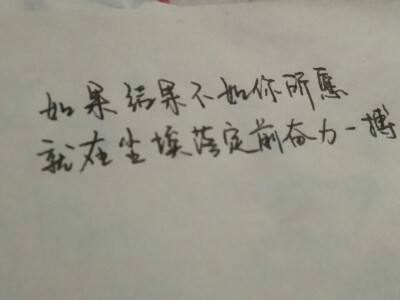 如果结果不如你所愿
就在尘埃落定前奋力一搏